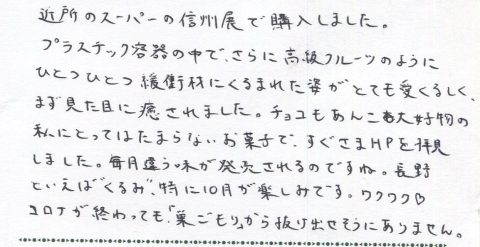 近所のスーパーの信州展で購入しました。
プラスチック容器の中で、さらに高級フルーツのように
ひとつひとつ緩衝材にくるまれた姿がとても愛くるしく、
まず見た目に癒されました。チョコもあんこも大好物の
私にとってはたまらないお菓子で、すぐさまHPを拝見
しました。毎月違う味が発売されるのですね。長野
といえば"くるみ"、特に10月が楽しみです。ワクワク♡
コロナが終わっても「巣ごもり」から抜け出せそうにありません。